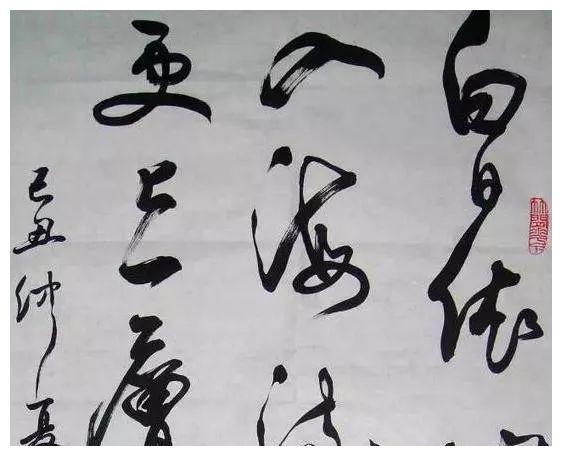 白日依
入海流
更上一層
己丑仲夏